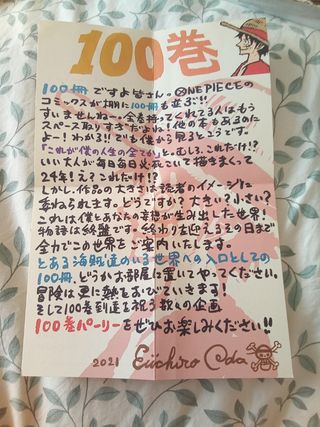 100巻
100冊ですよ皆さん。ONE PIECEの
コミックスが棚に100冊も並ぶ!!
すいませんね〜全巻持ってくれてる人はもう
スペース取りすぎだよね!他の本もあるのに
よー!わかる!!でも僕から見るとこうです。
「これが僕の人生の全てか」と。むしろ、これだけ!?
いい大人が毎日毎日必死こいて描きまくって
24年!え?これだけ!?
しかし、作品の大きさは読者のイメージに
委ねられます。どうですか?大きい?小さい?
これは僕とあなたの妄想が生み出した世界!
物語は終盤です。終わりを迎えるその日まで
全力でこの世界をご案内いたします。
とある海賊達のいる世界への入口としての
100冊、どうかお部屋に置いてやってください。
冒険は更に熱をおびていきます!
そして100巻到達を祝う数々の企画
100巻パーリーをぜひお楽しみください!!
2021 Eiichiro Oda